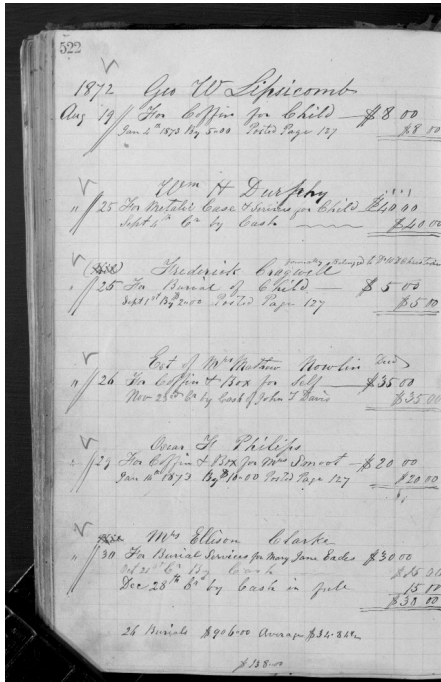 522
1872 Geo W Lipsicomb
Aug 19 For Coffin for Child — $8 00
Jan 4th 1873 By 5-00 Posted Page 127 $8 00
Wm H Durphy
" 25 For Metalic Case & Services for Child $40.00
Sept 4th Cr by Cash $40.00
Frederick Cragwell
" 25 For Burial of Child — $5 00
Sept 1st By 2-00 Posted Page 127 $5 00
Est of Mrs Mathew Nowlin Decd
" 26 For Coffin & Box for Self — $35.00
Nov 23rd Cr by Cash of John T Davis $35.00
Oscar H Philips
" 29 For Coffin & Box for Mrs Smoot — $20 00
Jan 14th 1873 By $10-00 Posted Page 127 $20 00
Mrs Ellison Clarke
" 30 For Burial Services for Mary Jane Eades $30.00
Oct 21st Cr By Cash $15 00
Dec 28th Cr by Cash in full 15 00
$30 00
26 Burials $906-00 Average $34.84
$138-00